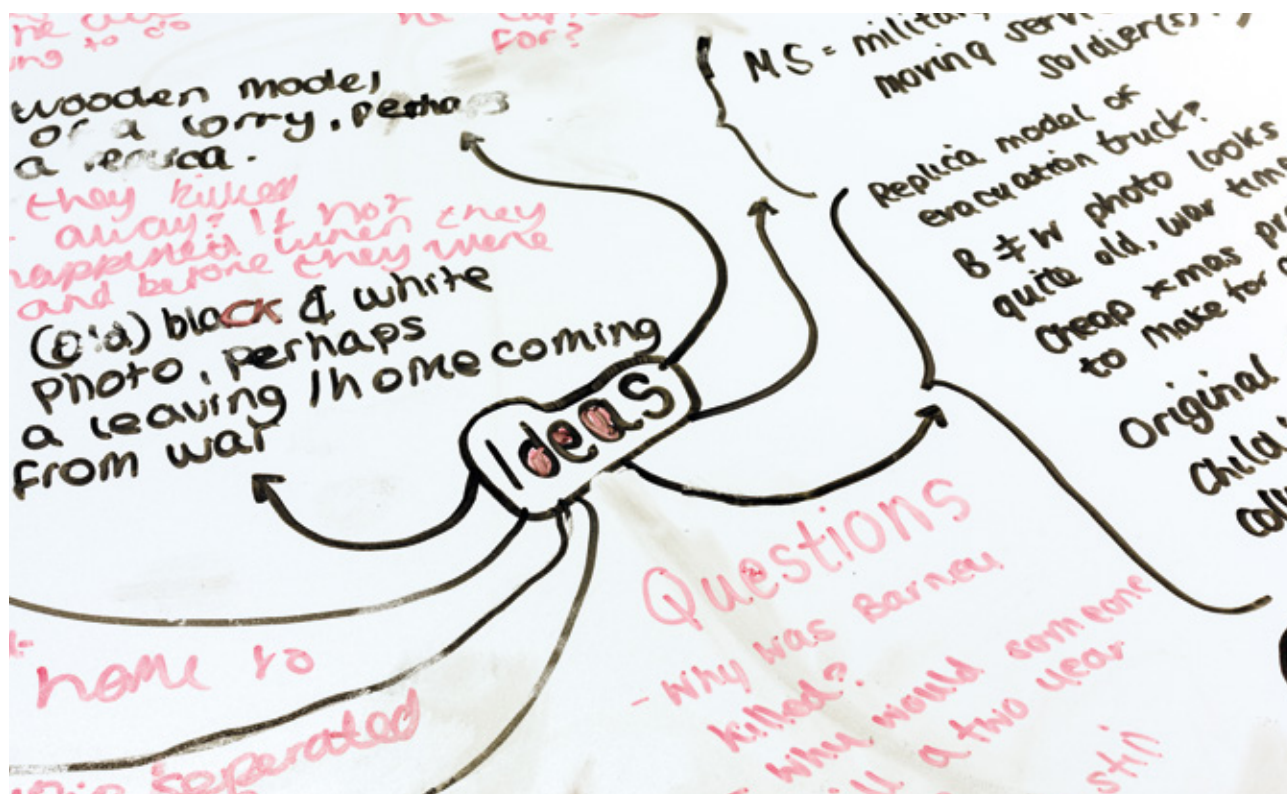 to do
for?
wooden model
of a lorry, perhaps
a replica.
they killed
away? If not
happened when they
and before they were
(Old) black & white
photo, perhaps
a leaving / homecoming
from war
Ideas
MS = military
moving
soldier(s)
Replica model of
evacuation truck?
B & W photo looks
quite old, war time
cheap xmas
to make for
Original
Child
Questions
- Why was Barney
killed?
- Why would someone
a two year
still
home to
seperated